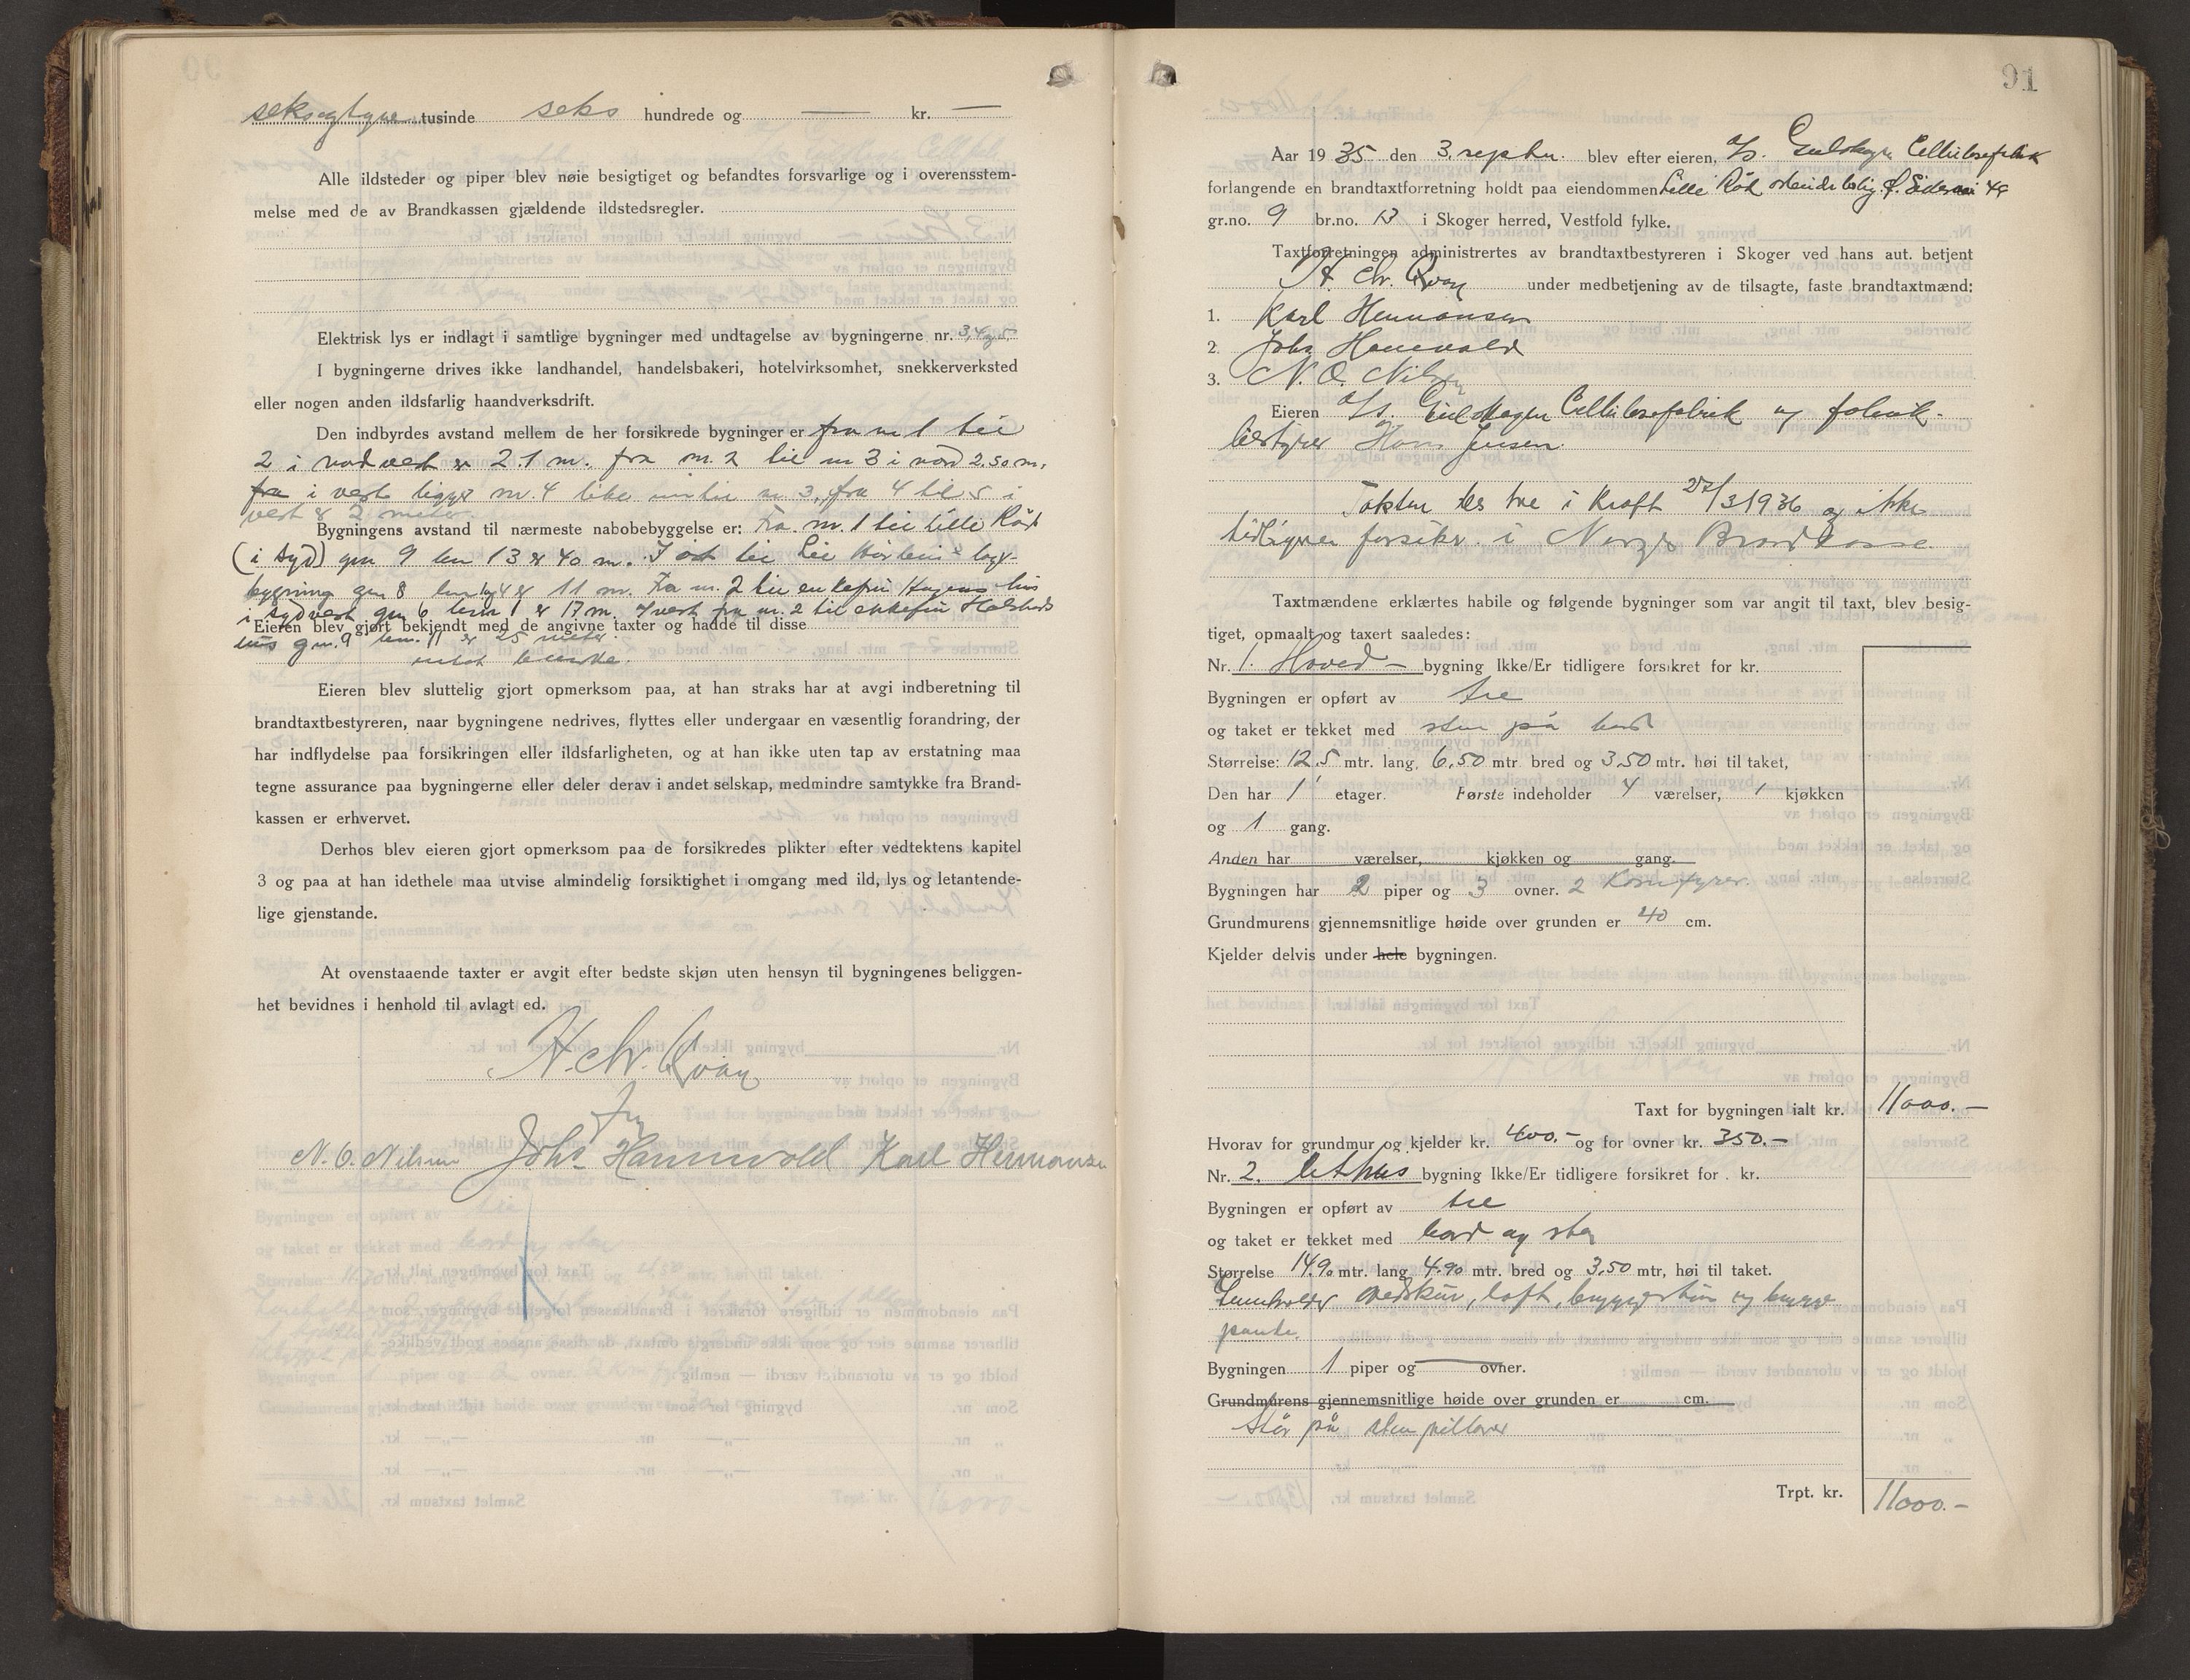 seksogtyve tusinde seks hundrede og — kr. —
Alle ildsteder og piper blev nøie besigtiget og befandtes forsvarlige og i overensstem-
melse med de av Brandkassen gjældende ildstedsregler.
Elektrisk lys er indlagt i samtlige bygninger med undtagelse av bygningerne nr. 3, 4 og 5
I bygningerne drives ikke landhandel, handelsbakeri, hotelvirksomhet, snekkerverksted
eller nogen anden ildsfarlig haandverksdrift.
Den indbyrdes avstand mellem de her forsikrede bygninger er fra nr 1 til
2 i nordvest er 21 m. fra nr. 2 til nr 3 i nord 2.50 m,
fra i vest ligger nr. 4 like inntil nr 3, fra 4 til 5 i
vest er 2 meter.
Bygningens avstand til nærmeste nabobebyggelse er: Fra nr. 1 til Lille Röd
(i syd) gnr 9 bnr 13 er 40 m. I öst til
bygning gnr 8 bnr 4 er 11 m. Fra nr. 2 til enkefru hus
i sydvest gnr 6 bnr 1 er 17 m. I vest fra nr. 2 til enkefru
Eieren blev gjort bekjendt med de angivne taxter og hadde til disse
hus gnr. 9 bnr. 11 er 25 meter.
intet bemerke.
Eieren blev sluttelig gjort opmerksom paa, at han straks har at avgi indberetning til
brandtaxtbestyreren, naar bygningene nedrives, flyttes eller undergaar en væsentlig forandring, der
har indflydelse paa forsikringen eller ildsfarligheten, og at han ikke uten tap av erstatning maa
tegne assurance paa bygningerne eller deler derav i andet selskap, medmindre samtykke fra Brand-
kassen er erhvervet.
Derhos blev eieren gjort opmerksom paa de forsikredes plikter efter vedtektens kapitel
3 og paa at han idethele maa utvise almindelig forsiktighet i omgang med ild, lys og letantende-
lige gjenstande.
At ovenstaaende taxter er avgit efter bedste skjøn uten hensyn til bygningenes beliggen-
het bevidnes i henhold til avlagt ed.
H. Chr. Qvan
N. O. Nilsen Johs Hannevold Karl Hermansen
91
Aar 1935 den 3. septbr. blev efter eieren, A/S. Gulskogen Cellulosefabrik
forlangende en brandtaxtforretning holdt paa eiendommen Lille Röd arbeiderbolig
gr.no. 9 br.no. 13 i Skoger herred, Vestfold fylke.
Taxtforretningen administrertes av brandtaxtbestyreren i Skoger ved hans aut. betjent
H. Chr. Qvan under medbetjening av de tilsagte, faste brandtaxtmænd:
1. Karl Hermansen
2. Johs Hannevold
3. N. O. Nilsen
Eieren A/S. Gulskogen Cellulosefabrik og fabrik-
bestyrer Hans Jensen.
Taksten tre i kraft 27/3 1936 og ikke
tidligere forsikr. i Norges Brandkasse
Taxtmændene erklærtes habile og følgende bygninger som var angit til taxt, blev besig-
tiget, opmaalt og taxert saaledes:
Nr. 1. Hoved - bygning Ikke/Er tidligere forsikret for kr.
Bygningen er opført av tre
og taket er tekket med sten på bord
Størrelse: 12.5 mtr. lang, 6,50 mtr bred og 3,50 mtr. høi til taket,
Den har 1 etager. Første indeholder 4 værelser, 1 kjøkken
og 1 gang.
Anden har værelser, kjøkken og gang.
Bygningen har 2 piper og 3 ovner. 2 Komfyrer.
Grundmurens gjennemsnitlige høide over grunden er 40 cm.
Kjelder delvis under hele bygningen.
Taxt for bygningen ialt kr. 11000.-
Hvorav for grundmur og kjelder kr. 400.- og for ovner kr. 350.-
Nr. 2. Uthus bygning Ikke/Er tidligere forsikret for kr.
Bygningen er opført av tre
og taket er tekket med bord og sten
Størrelse 14.90 mtr. lang 4.90 mtr. bred og 3.50 mtr, høi til taket.
Inneholder vedskur, loft, bryggerhus og brygge
panne.
Bygningen 1 piper og — ovner.
Grundmurens gjennemsnitlige høide over grunden er cm.
Står på sten pillarer
Trpt. kr. 11000.-